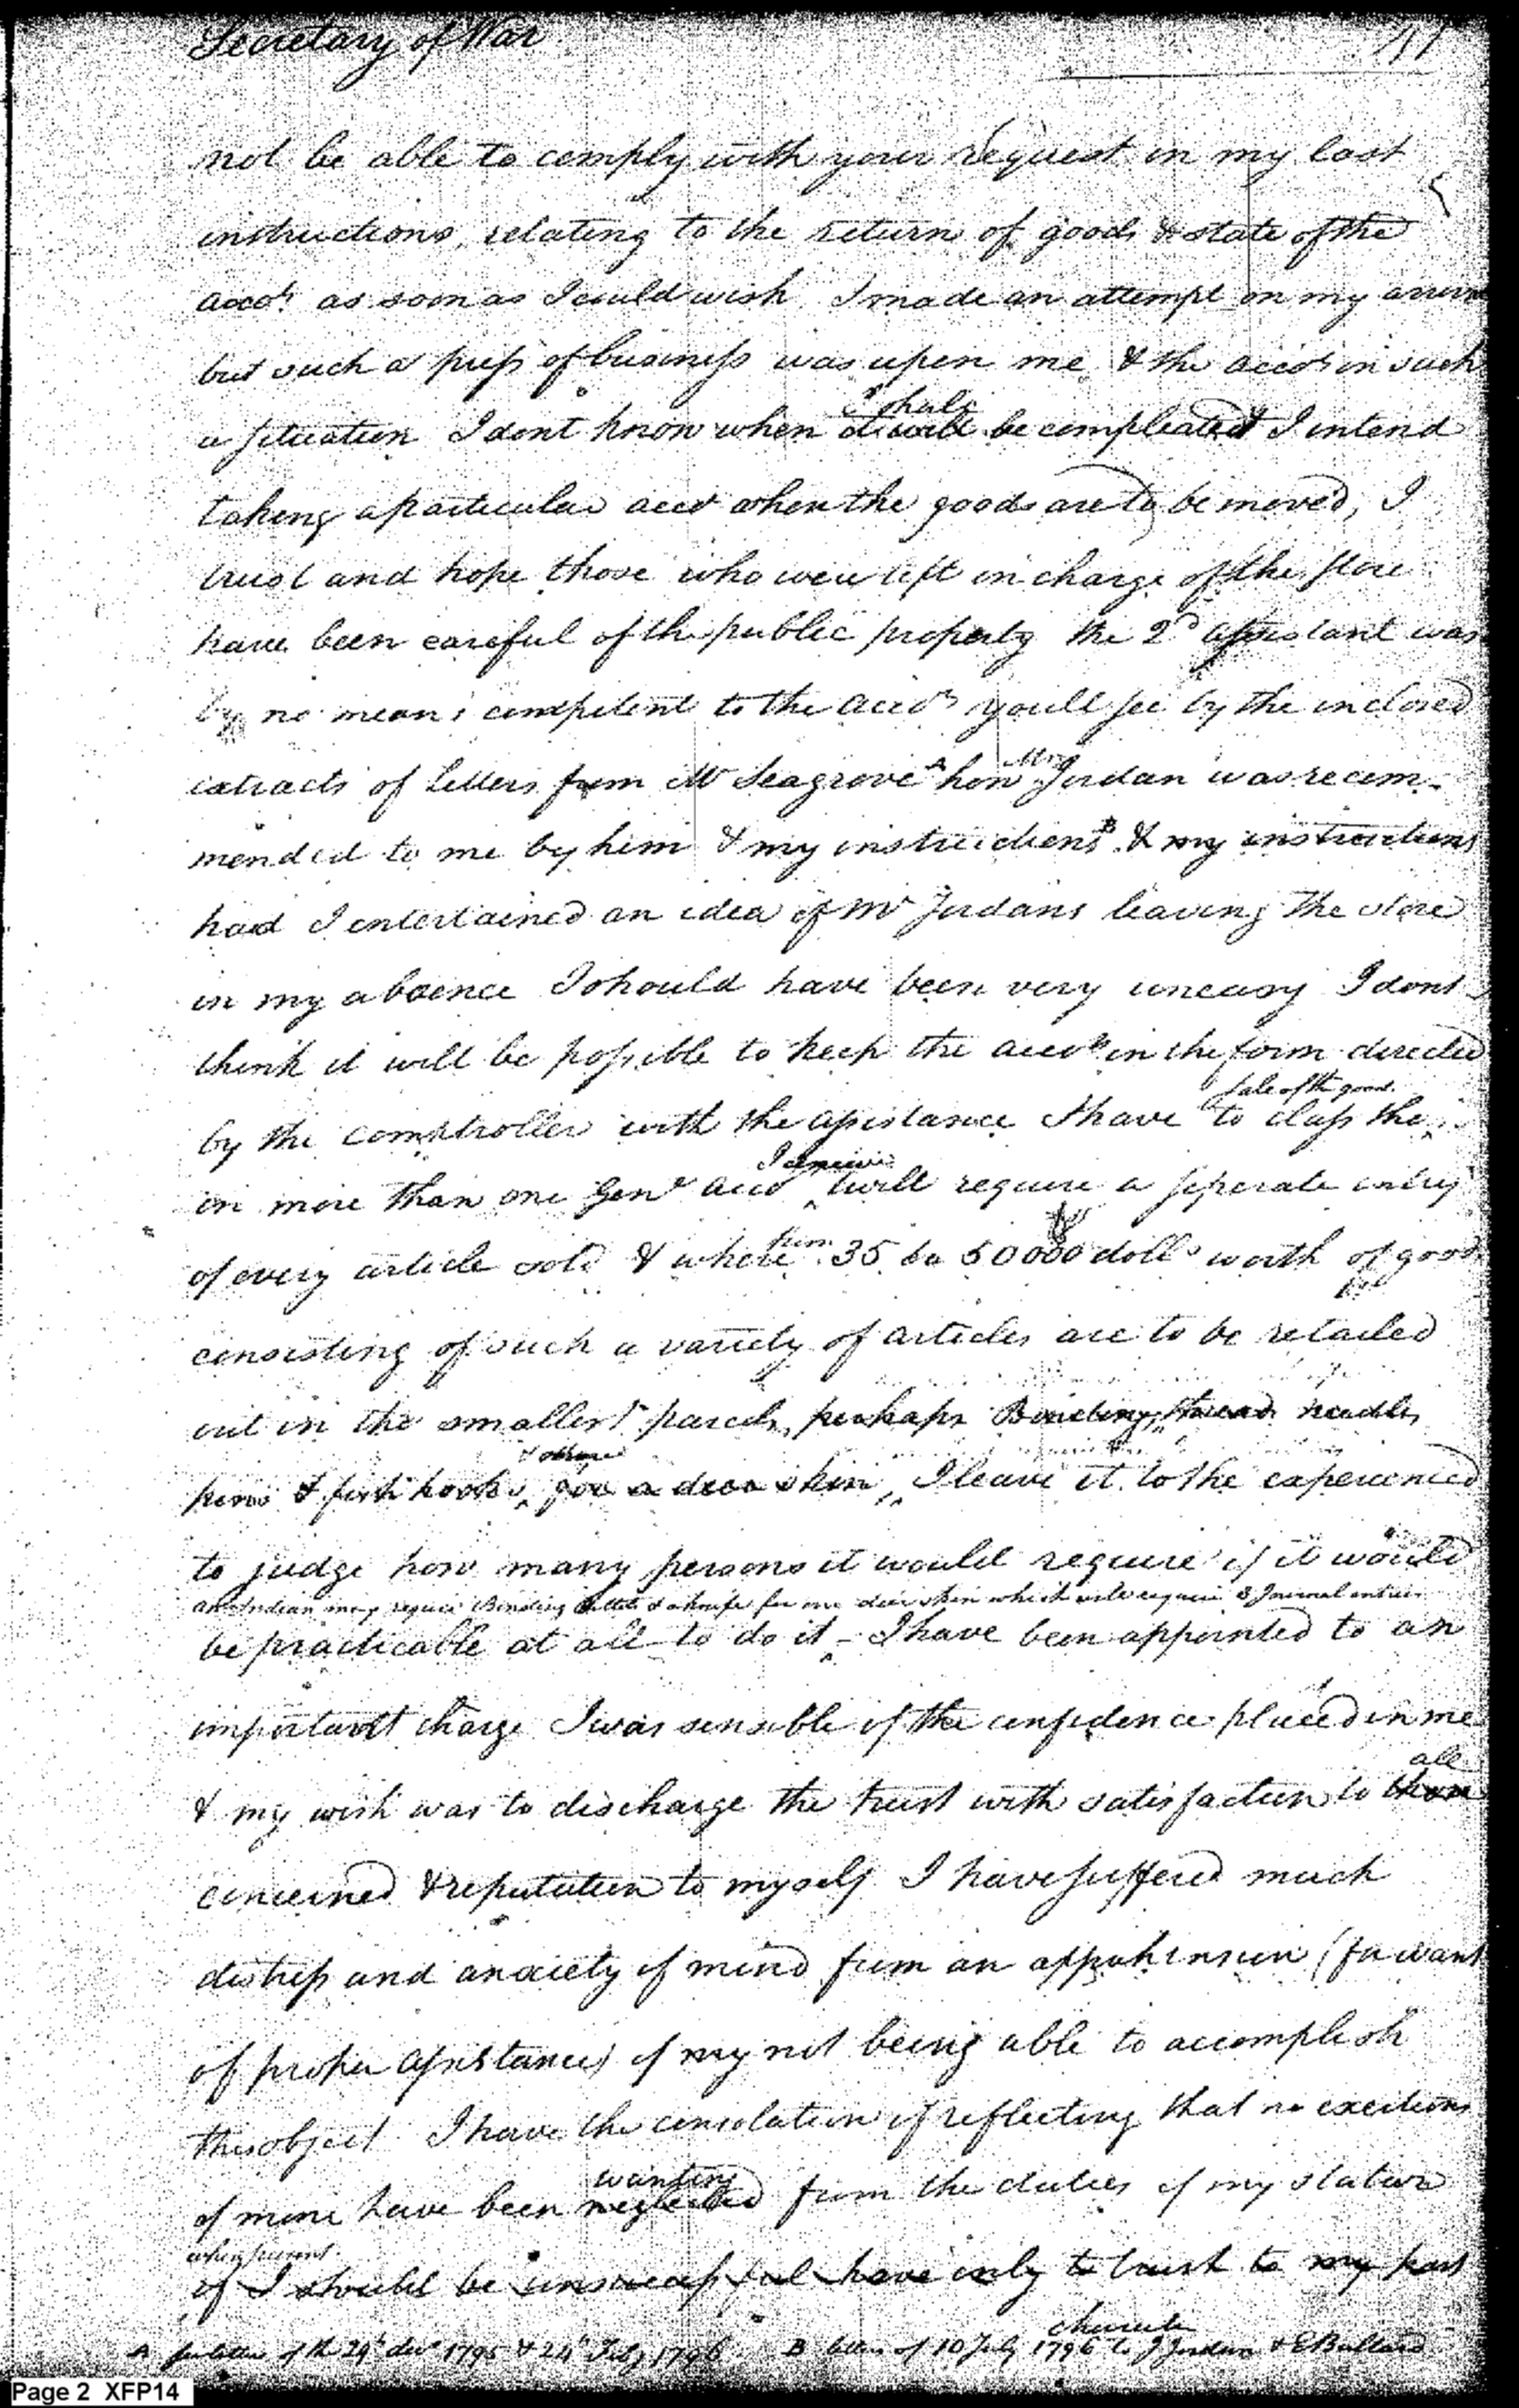 Secretary of War
not be able to comply with your request in my last
instructions, relating to the return of goods & state of the
accots as soon as I could wish I made an attempt on my
but such a press of business was upon me & the accots in such
I shall
a situation I dont know when be compleated I intend
taking a particular accot when the goods are to be moved, I
trust and hope those who were left in charge of the store
have been careful of the public property the 2d assistant was
by no means competent to the accots youll see by the inclosed
Mr
extracts of Letters from Mr Seagrove A how Jordan was recom-
mended to me by him & my instructions B & my instructions
had I entertained an idea of Mr Jordans leaving the store
in my absence I should have been very uneasy I dont
think it will be possible to keep the accots in the form directed
sale of the goods
by the comptroller with the assistance I have to class the
I conceive
in more than one Genl accot will require a seperate entry
from
of every article sold & where 35 to 50000 dolls worth of goods
consisting of such a variety of articles are to be retailed
out in the smallest parcels, perhaps Binding, thread needles
pins & fish hooks, for a deer skin, I leave it to the experienced
to judge how many persons it would require if it would
an Indian may require Binding & a knife for one deer skin which will require 3 Journal entries
be practicable at all to do it - I have been appointed to an
important charge I was sensible of the confidence placed in me
all
& my wish was to discharge the trust with satisfaction to
concerned & reputation to myself I have suffered much
distress and anxiety of mind from an apprehension (for want
of proper assistance) of my not being able to accomplish
this object I have the consolation of reflecting that no exertions
wanting
of mine have been neglected from the duties of my station
when present
if I should be unsuccessful have only to trust to my past
A letter of the 29 decr 1795 & 24 Feby 1796 B letter of 10 July 1796 to J Jordan & E Bullard
Page 2 XFP14